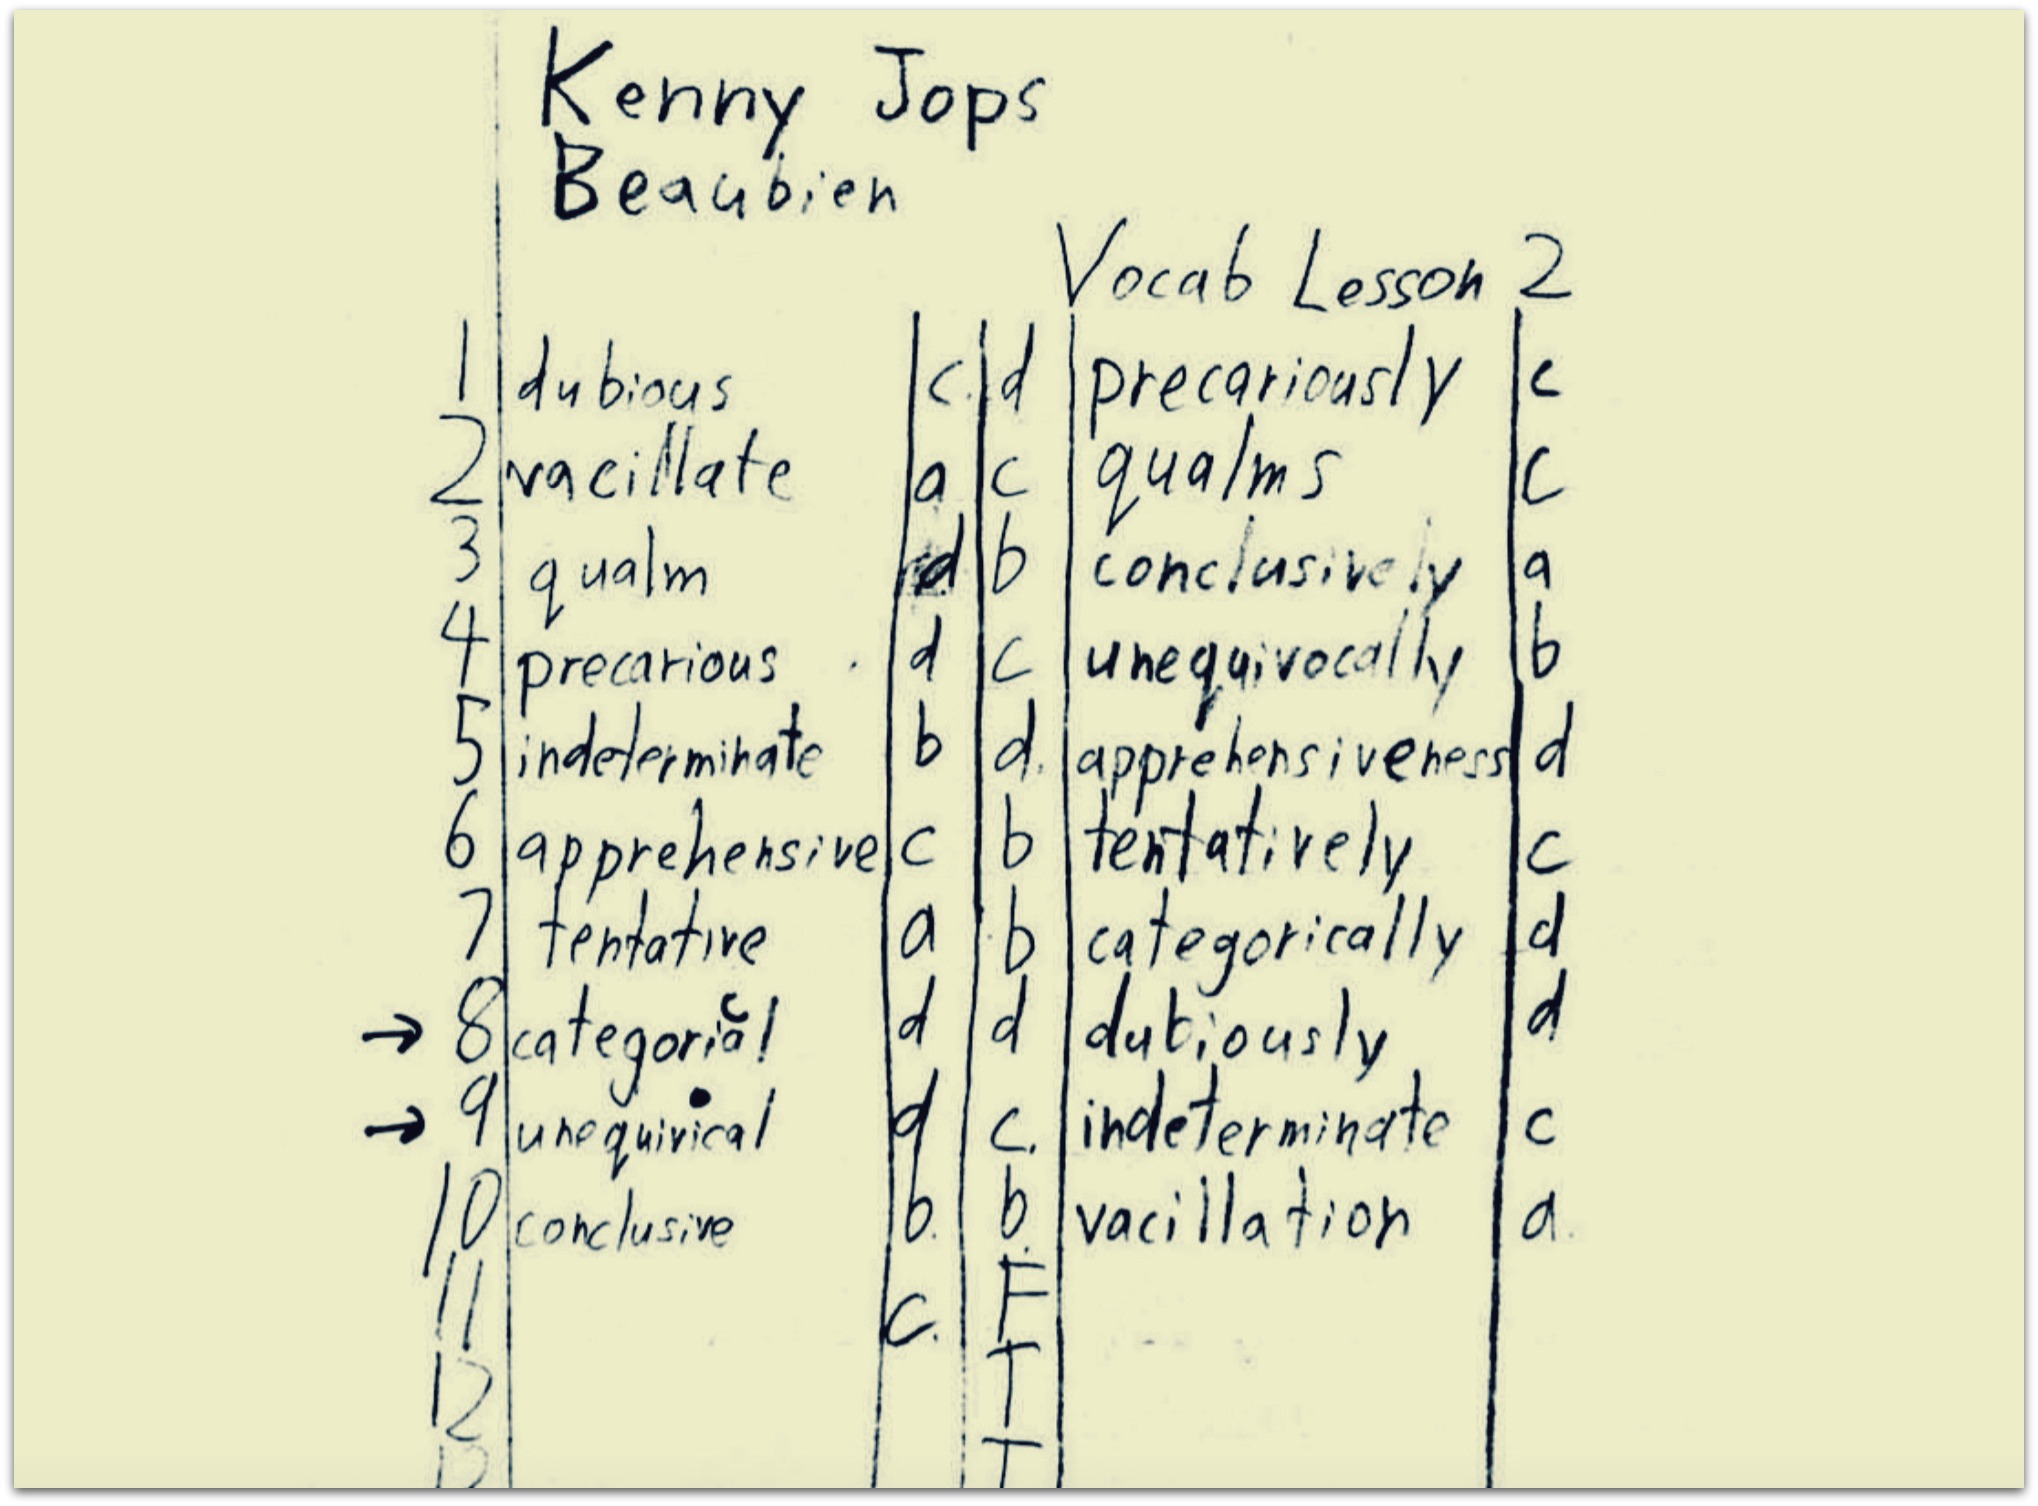 Kenny Jops
Beaubien
Vocab Lesson 2
1 dubious c. d precariously c
2 vacillate a c qualms c
3 qualm d b conclusively a
4 precarious d c unequivocally b
5 indeterminate b d. apprehensiveness d
6 apprehensive c b tentatively c
7 tentative a b categorically d
→ 8 categorial c d d dubiously d
→ 9 unequivical d c. indeterminate c
10 conclusive b. b. vacillation a.
11 c. F
12 T
13 T